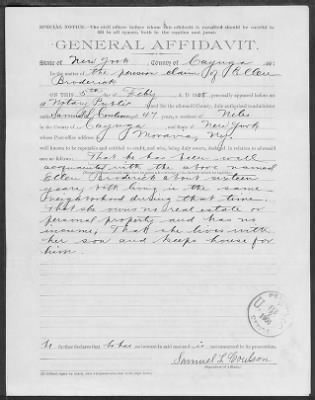 SPECIAL NOTICE.—The civil officer before whom this affidavit is executed should be careful to
fill in all spaces, both in the caption and jurat.
GENERAL AFFIDAVIT.
State of New York County of Cayuga, ss:
In the matter of the pension claim of Ellen
Broderick
ON THIS 5th day of Feby A. D. personally appeared before me
a Notary Public in and for the aforesaid County, duly authorized to administer
oaths Samuel Coulson aged 47 years, a resident of Niles
in the County of Cayuga and State of New York
whose Post-office address is Moravia, Ny
well known to be reputable and entitled to credit, and who, being duly sworn, declared in relation to aforesaid
case as follows: That he has been well
acquainted with the above named
Ellen Broderick about sixteen
years, both living in the same
neighborhood during that time.
That she owns no real estate or
personal property and has no
income, That she lives with
her son and keeps house for
him.
He further declares that he has no interest in said matter is not concerned in its prosecution.
Samuel L Coulson
(Signature of Affiant.)